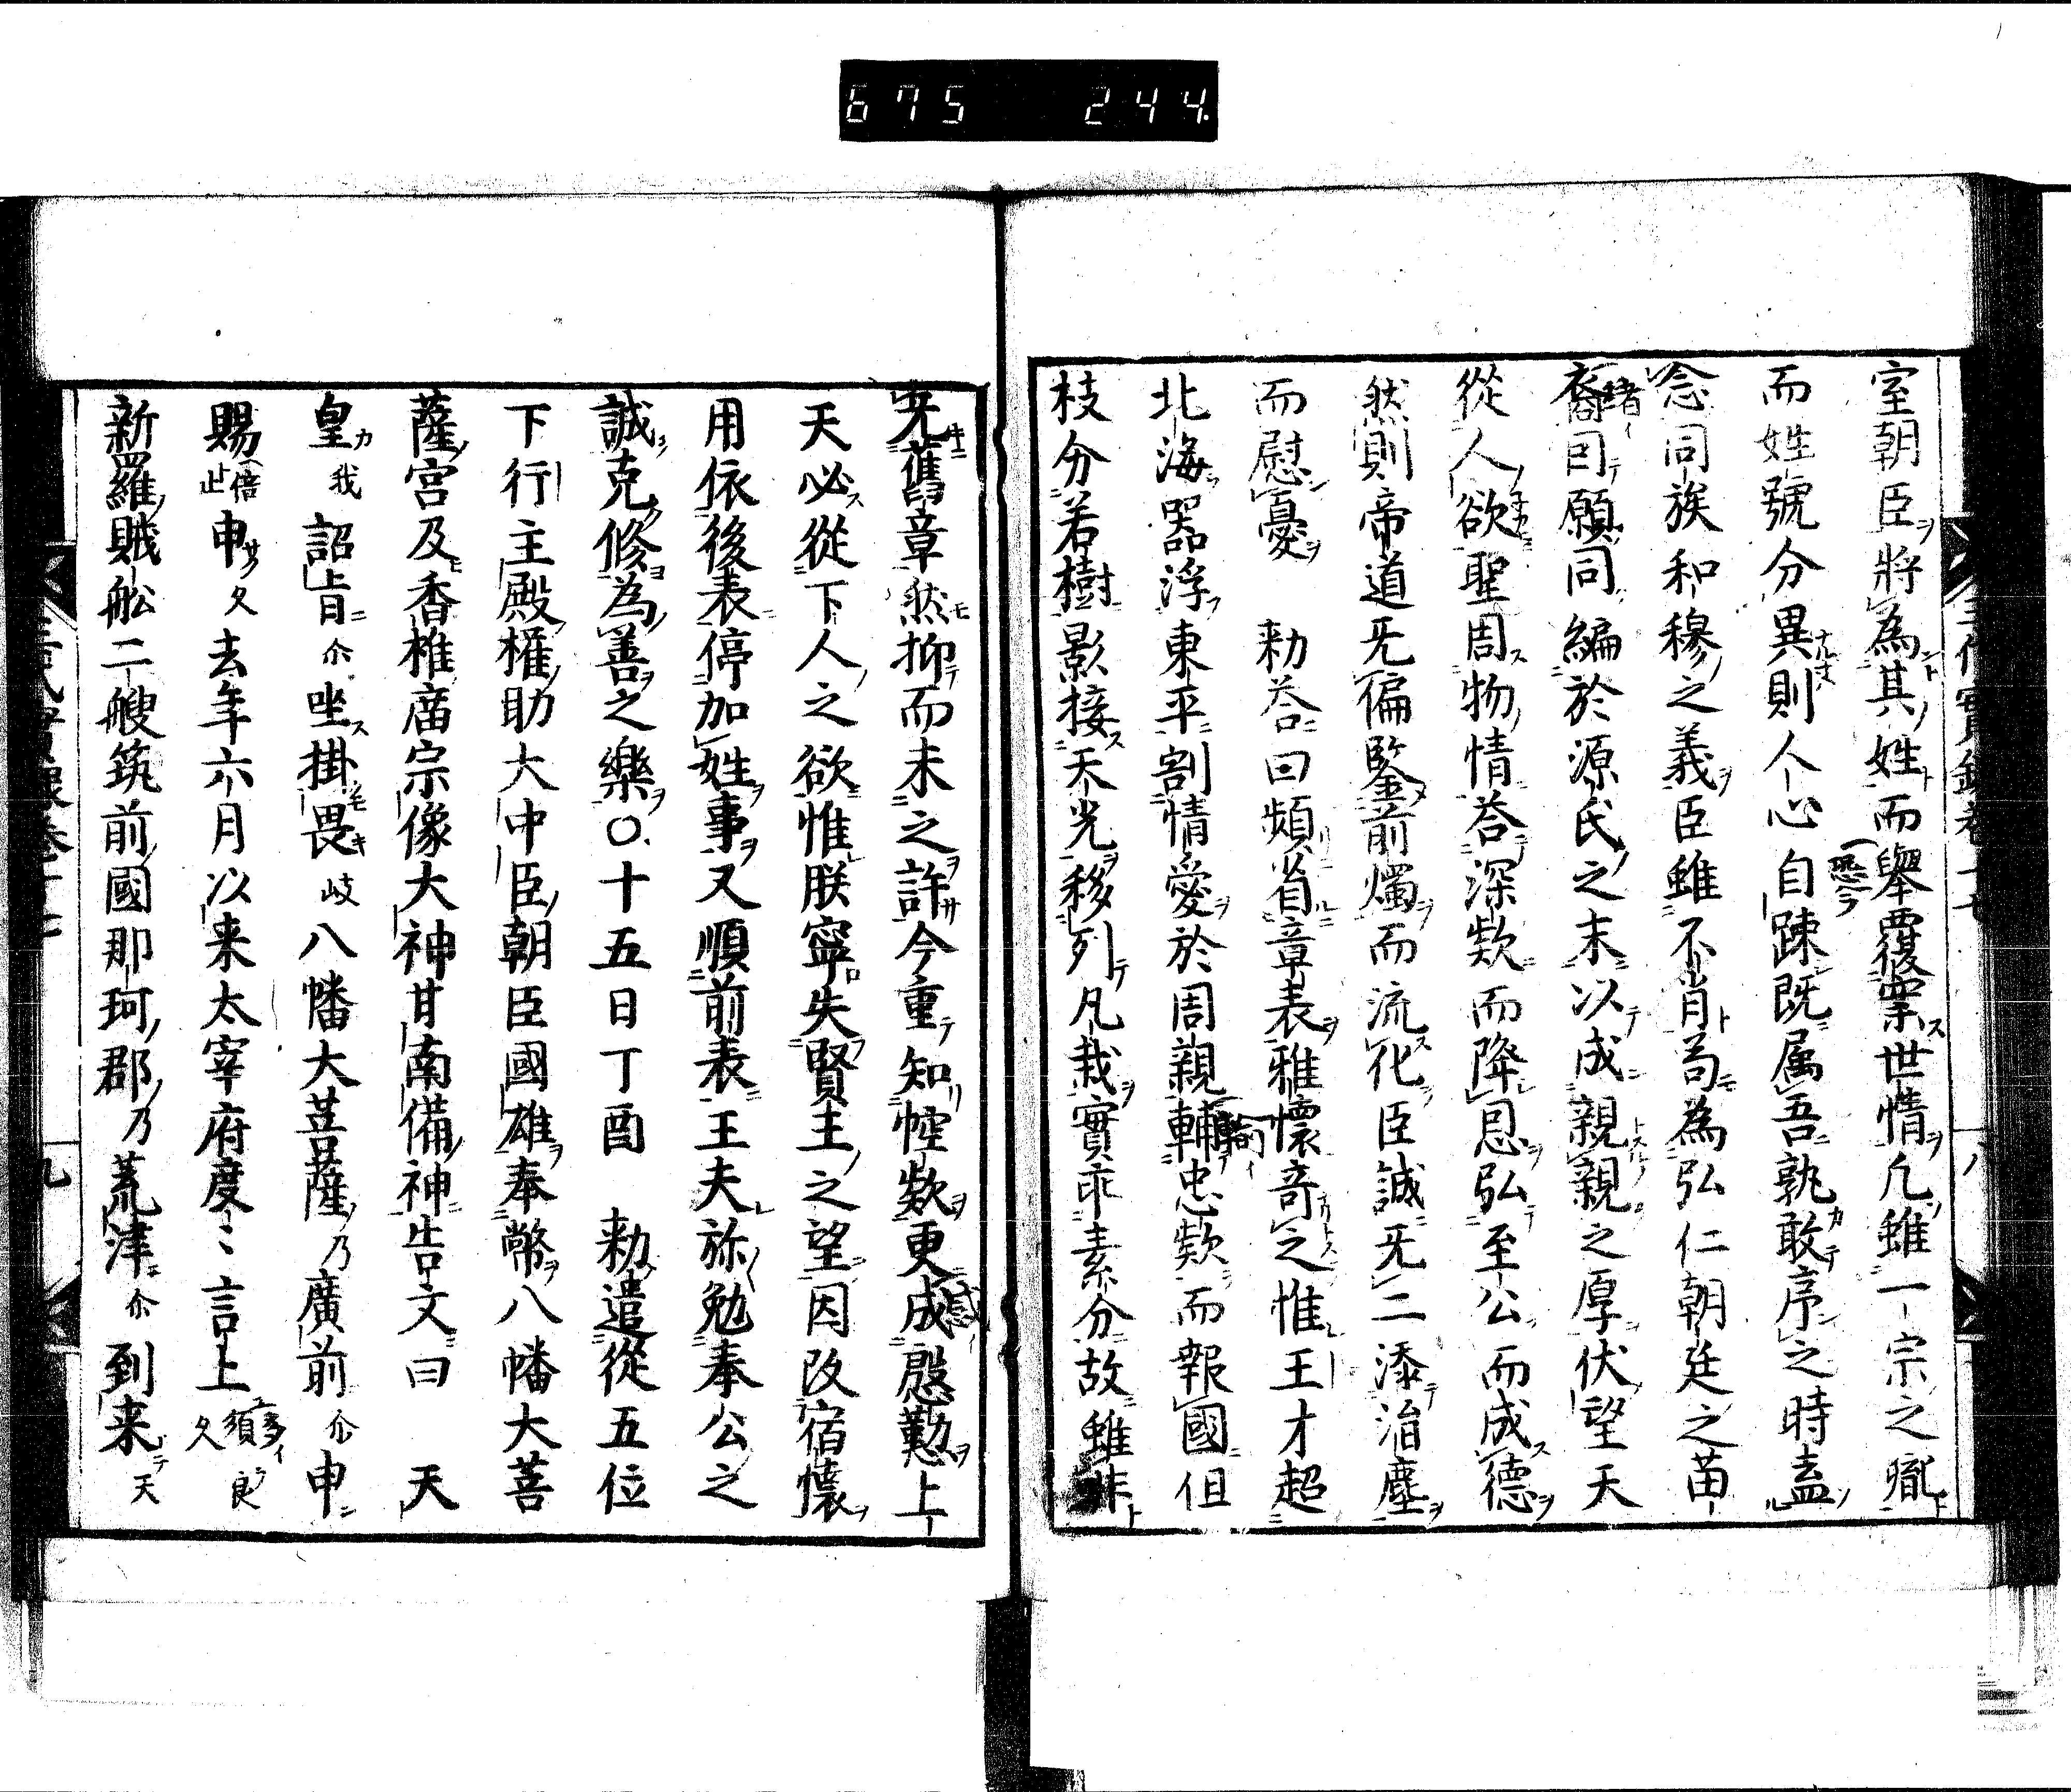 675 244
室朝臣將為其姓而舉覆案世情凡雖一宗之胤
而姓號分異則人心自踈既属吾孰敢序之時盍
念同族和穆之義臣雖不肖苟為弘仁朝廷之苗
裔因願同編於源氏之末以成親親之厚伏望天
從人欲聖周物情荅深欵而降恩弘至公而成德
然則帝道旡偏鑒前燭而流化臣誠旡二添湝塵
而慰憂　勑荅曰頻省章表雅懷奇之惟王才超
北海器浮東平割情愛於周親輔忠欵而報國但
枝分若樹影接天光移列凡栽實乖素分故雖非
旡舊章然抑而未之許今重知悾欵更成慇懃上
天必從下人之欲惟朕寧失賢王之望因改宿懷
用依後表停加姓事又順前表王夫旀勉奉公之
誠克修為善之樂〇十五日丁酉　勑遣從五位
下行主殿權助大中臣朝臣國雄奉幣八幡大菩
薩宮及香椎廟宗像大神甘南備神告文曰　天
皇我詔旨尒坐掛畏岐八幡大菩薩乃廣前尒申
賜倍止申久去年六月以来太宰府度〻言上須良久
新羅賊舩二艘筑前國那珂郡乃荒津尒到来天
三代實録卷十七　八
三代實録卷十七　九